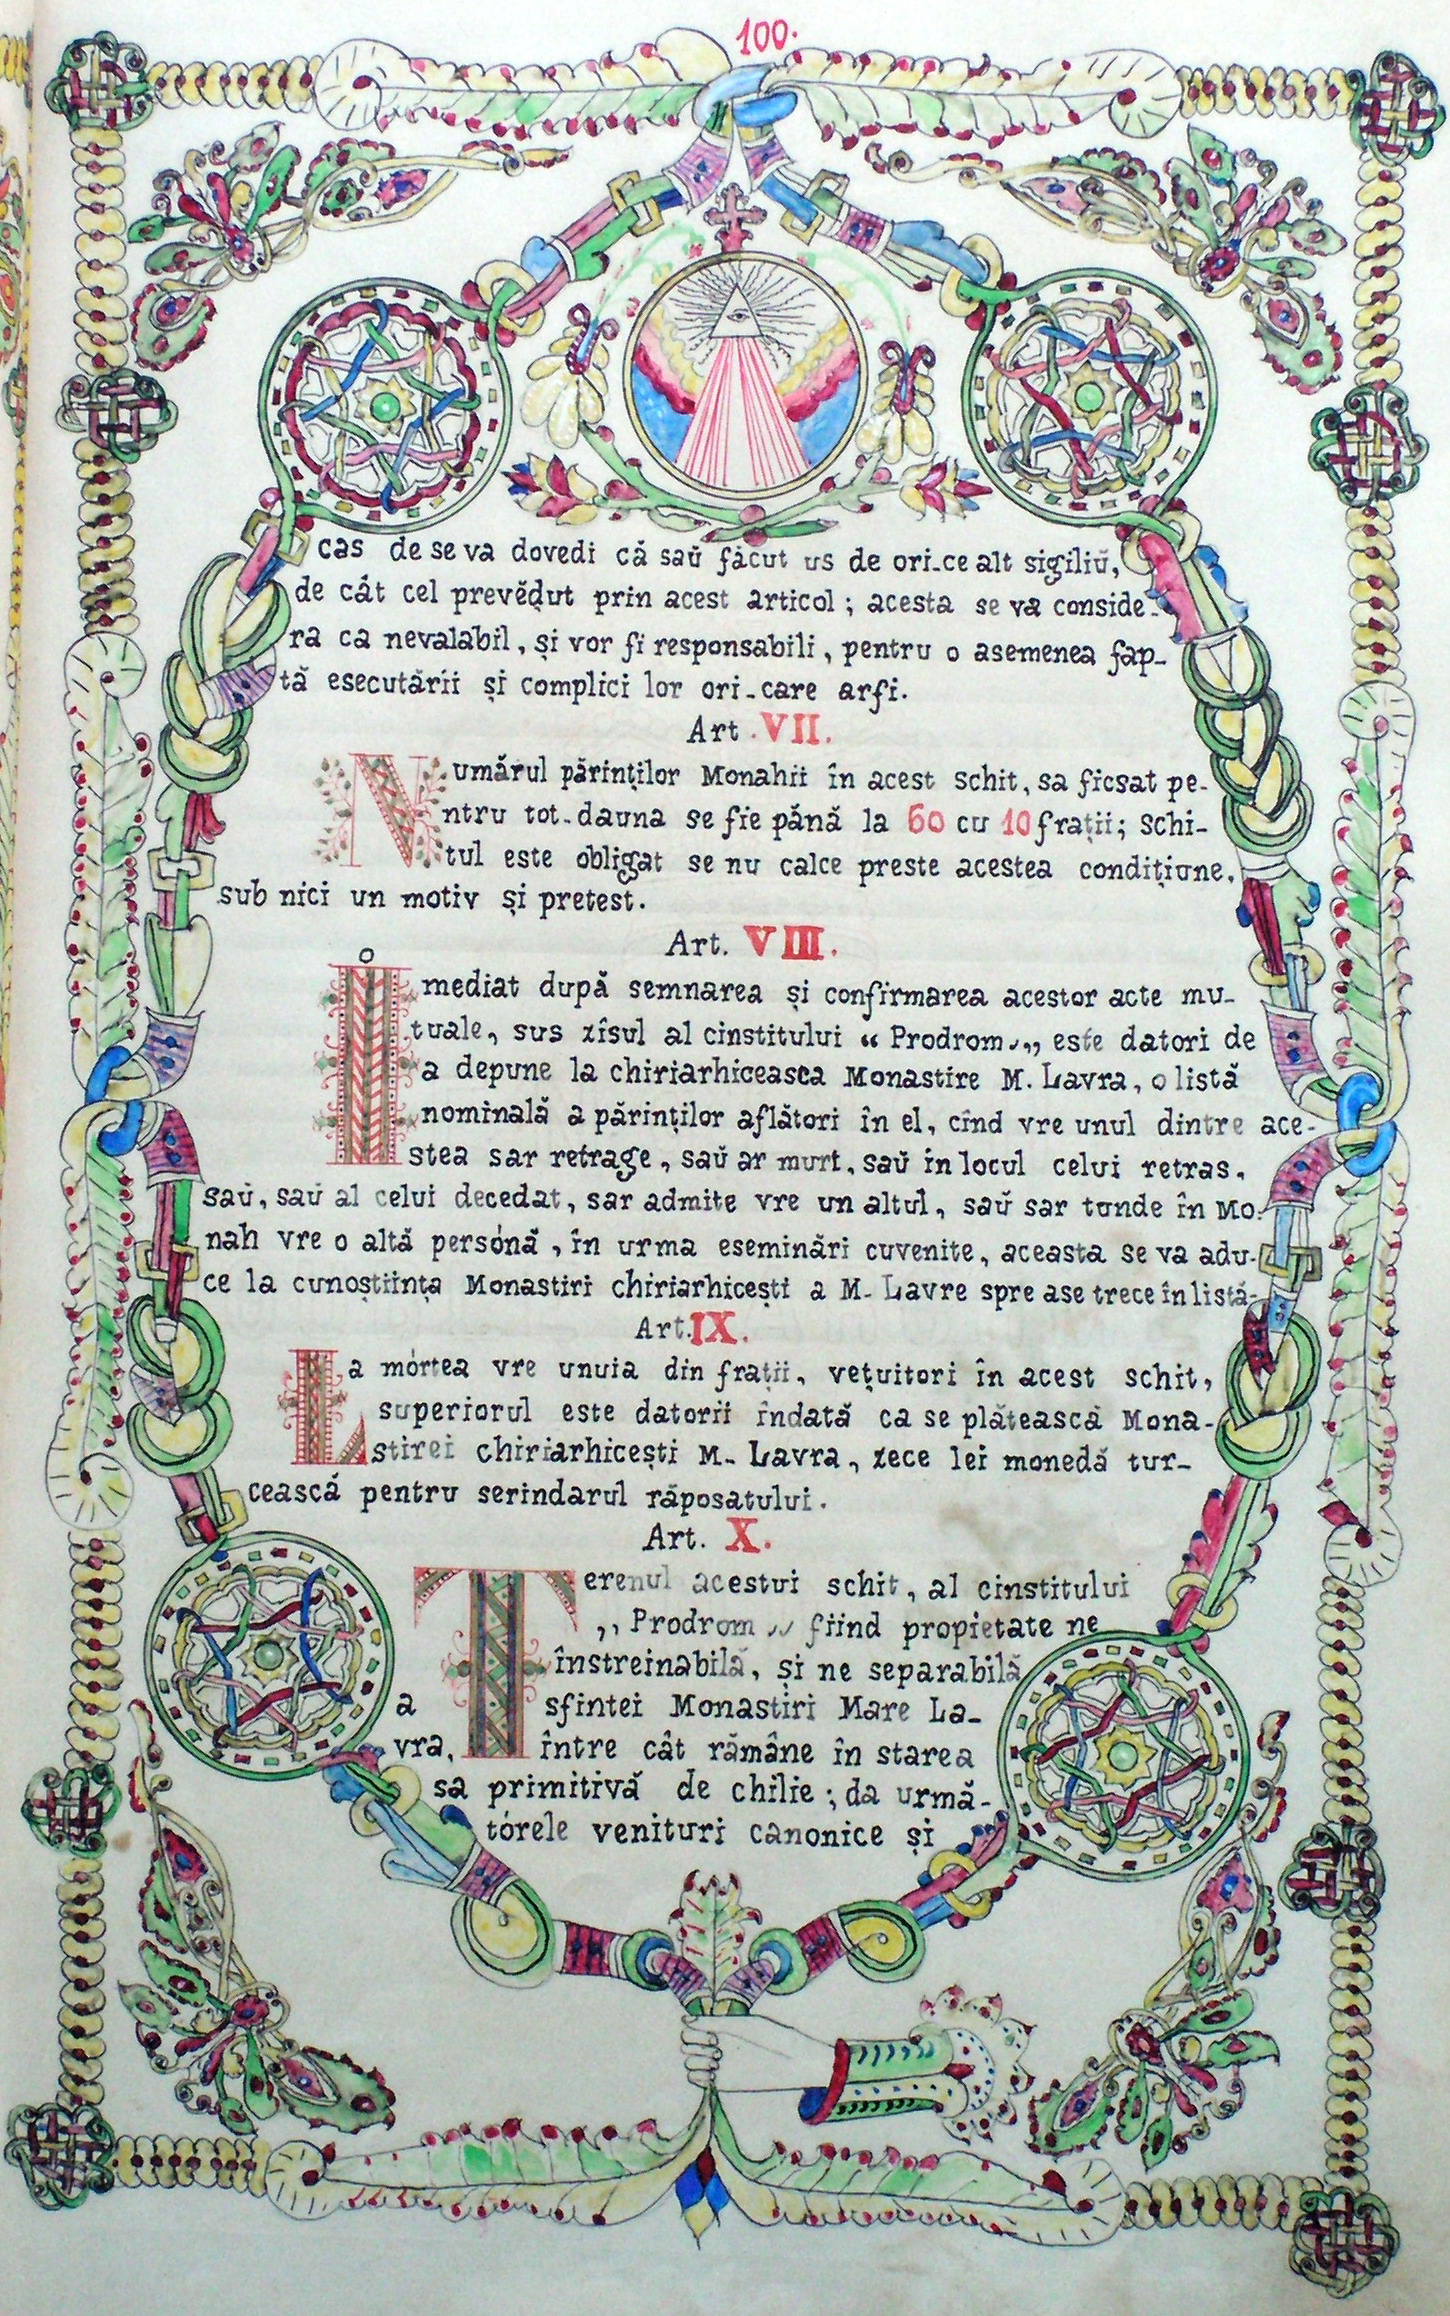 100.
cas de se va dovedi că saŭ făcut us de ori-ce alt sigiliŭ,
de cât cel prevĕḑut prin acest articol; acesta se va conside-
ra ca nevalabil, și vor fi responsabili, pentru o asemenea fap-
tă esecutării și complici lor ori-care arfi.
Art. VII.
Numărul părinților Monahii în acest schit, sa ficsat pe-
ntru tot-dauna se fie până la 60 cu 10 frații; Schi-
tul este obligat se nu calce preste acestea condițiune,
sub nici un motiv și pretest.
Art. VIII.
Imediat după semnarea și confirmarea acestor acte mu-
tuale, sus zîsul al cinstitului “Prodrom„ este datori de
a depune la chiriarhiceasca Monastire M. Lavra, o listă
nominală a părinților aflători în el, cînd vre unul dintre ace-
stea sar retrage, saŭ ar murt, saŭ în locul celui retras,
saŭ, saŭ al celui decedat, sar admite vre un altul, saŭ sar tunde în Mo-
nah vre o altă persónă, în urma eseminări cuvenite, aceasta se va adu-
ce la cunoștiința Monastiri chiriarhicești a M. Lavre spre ase trece în listă.
Art. IX.
La mórtea vre unuia din frații, vețuitori în acest schit,
superiorul este datorii îndată ca se plătească Mona-
stirei chiriarhicești M. Lavra, zece lei monedă tur-
cească pentru serindarul răposatului.
Art. X.
Terenul acestui schit, al cinstitului
„Prodrom„ fiind propietate ne
înstreinabilă, și ne separabilă
a sfintei Monastiri Mare La-
vra, între cât rămâne în starea
sa primitivă de chilie; da urmă-
tórele venituri canonice și